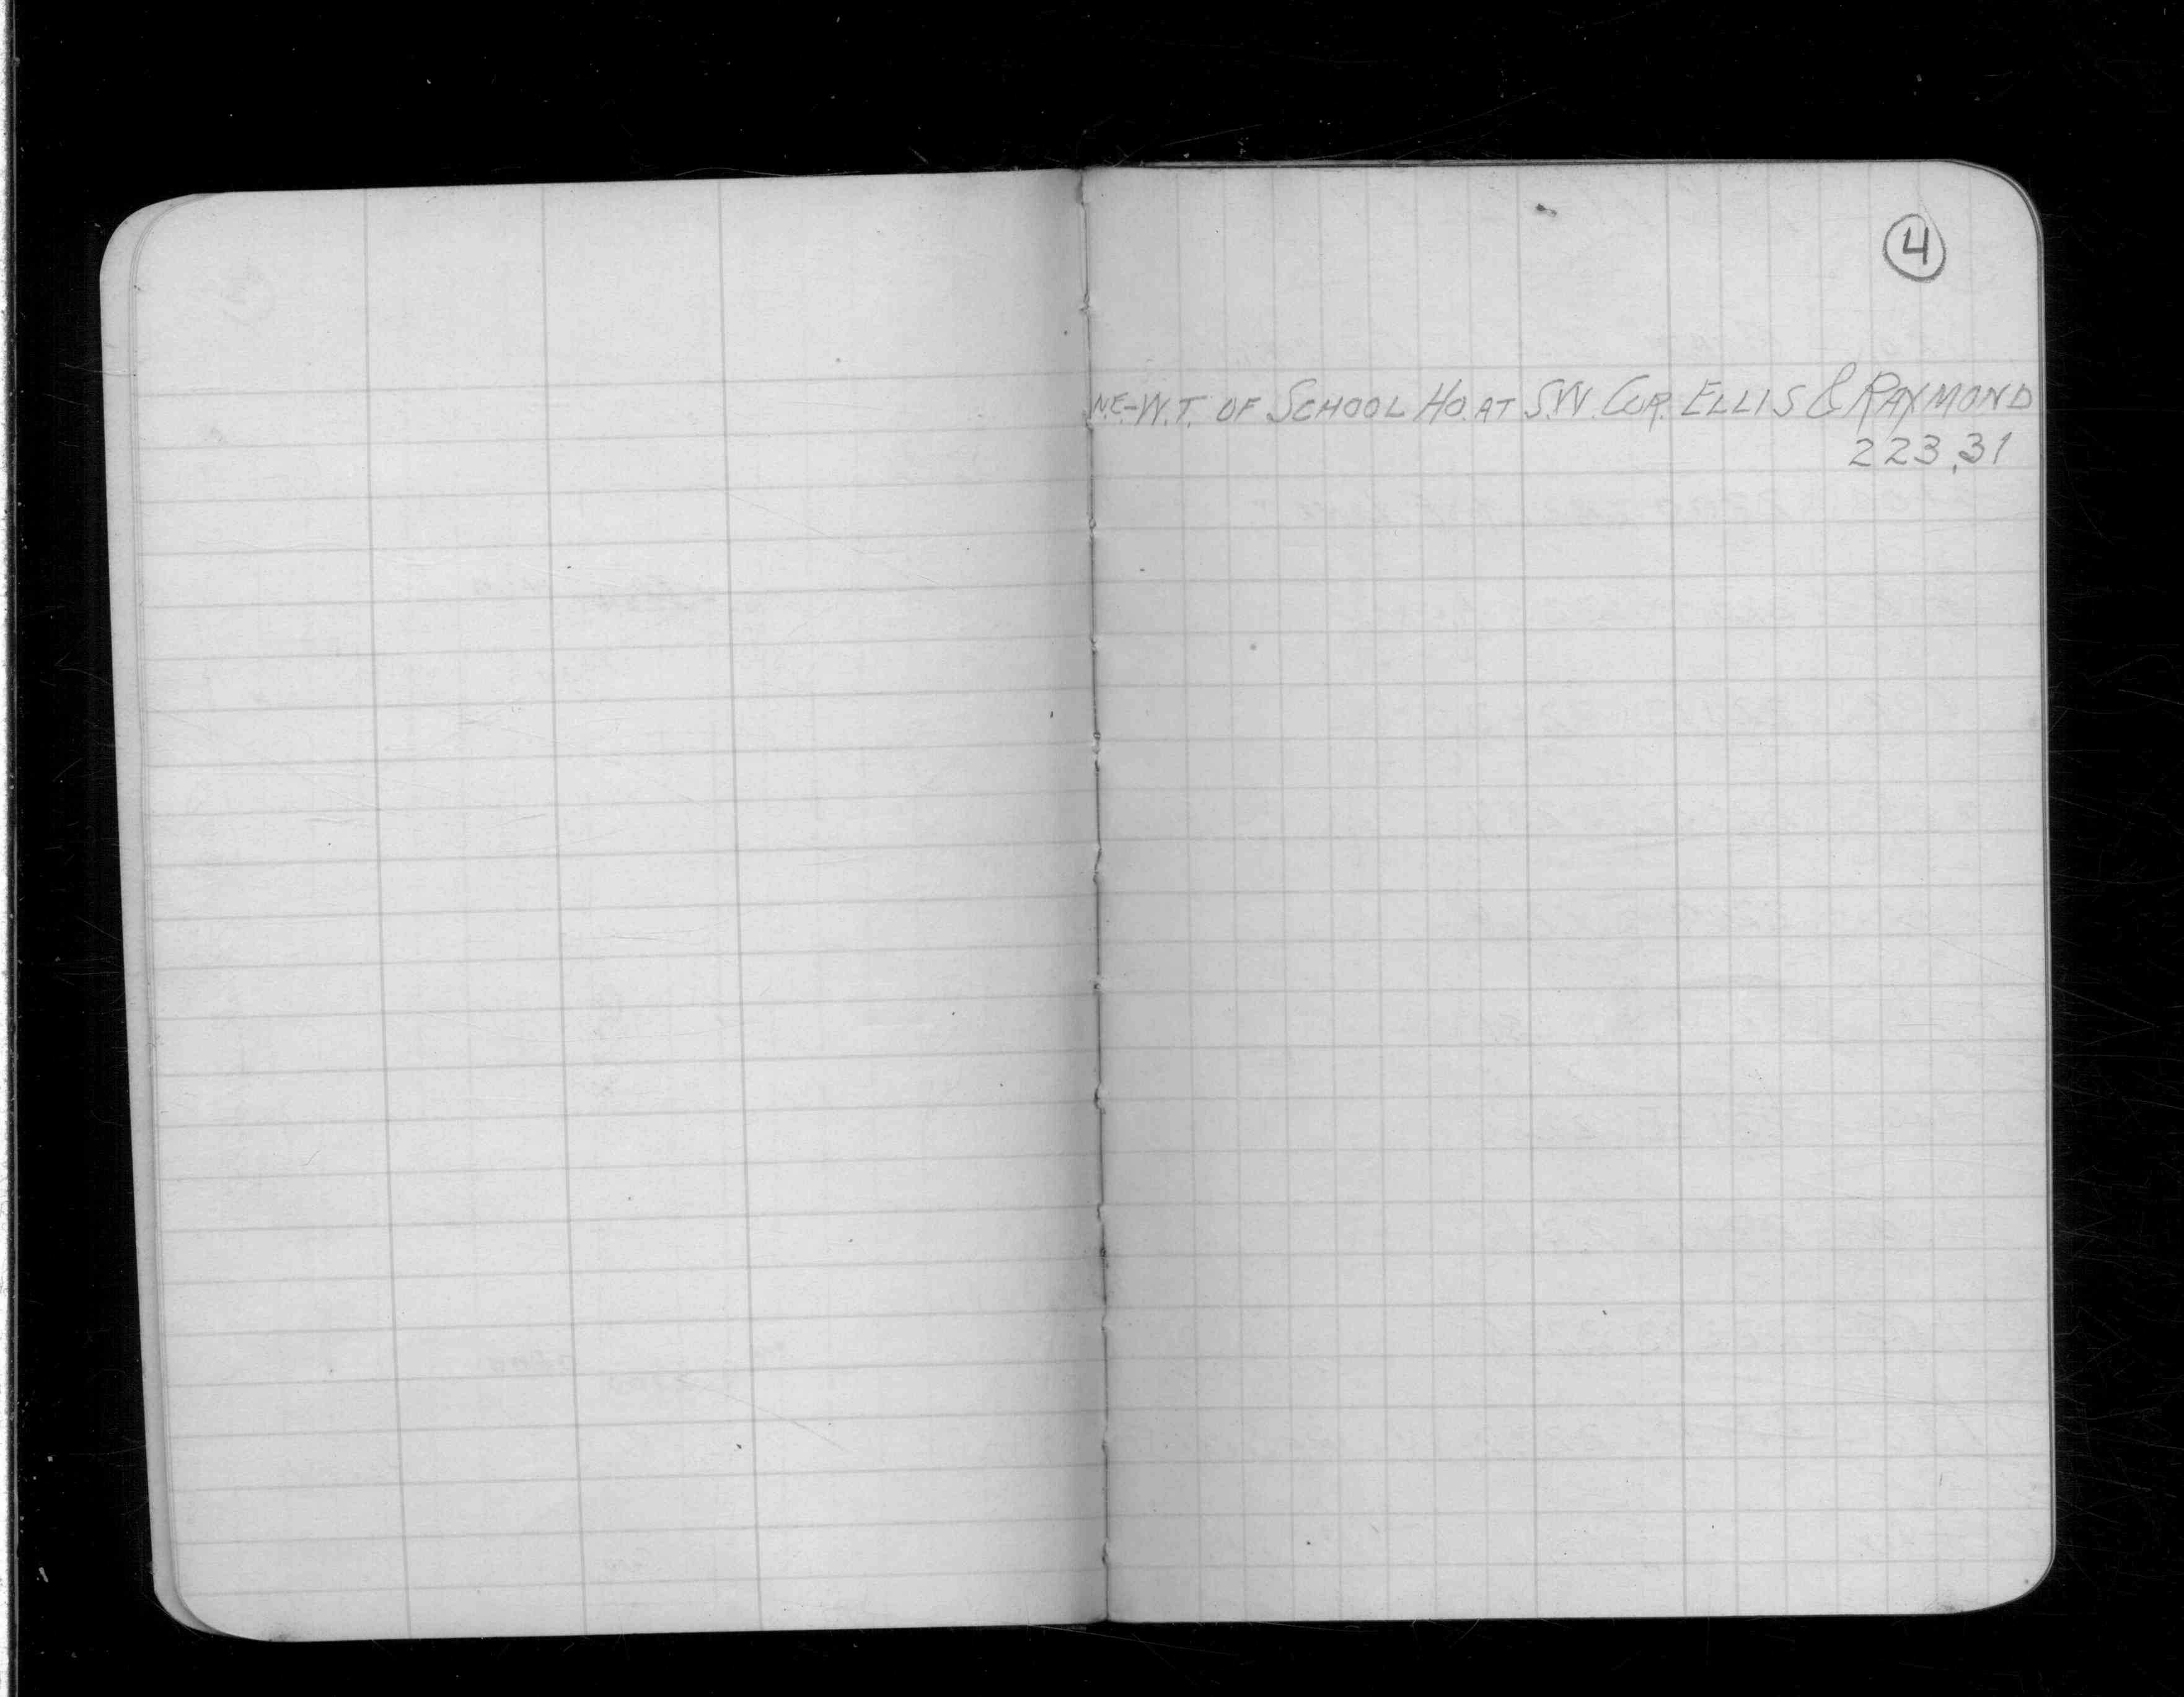 4
N.E-W.T. OF SCHOOL HO. AT S.W. COR. ELLIS & RAYMOND
223.31